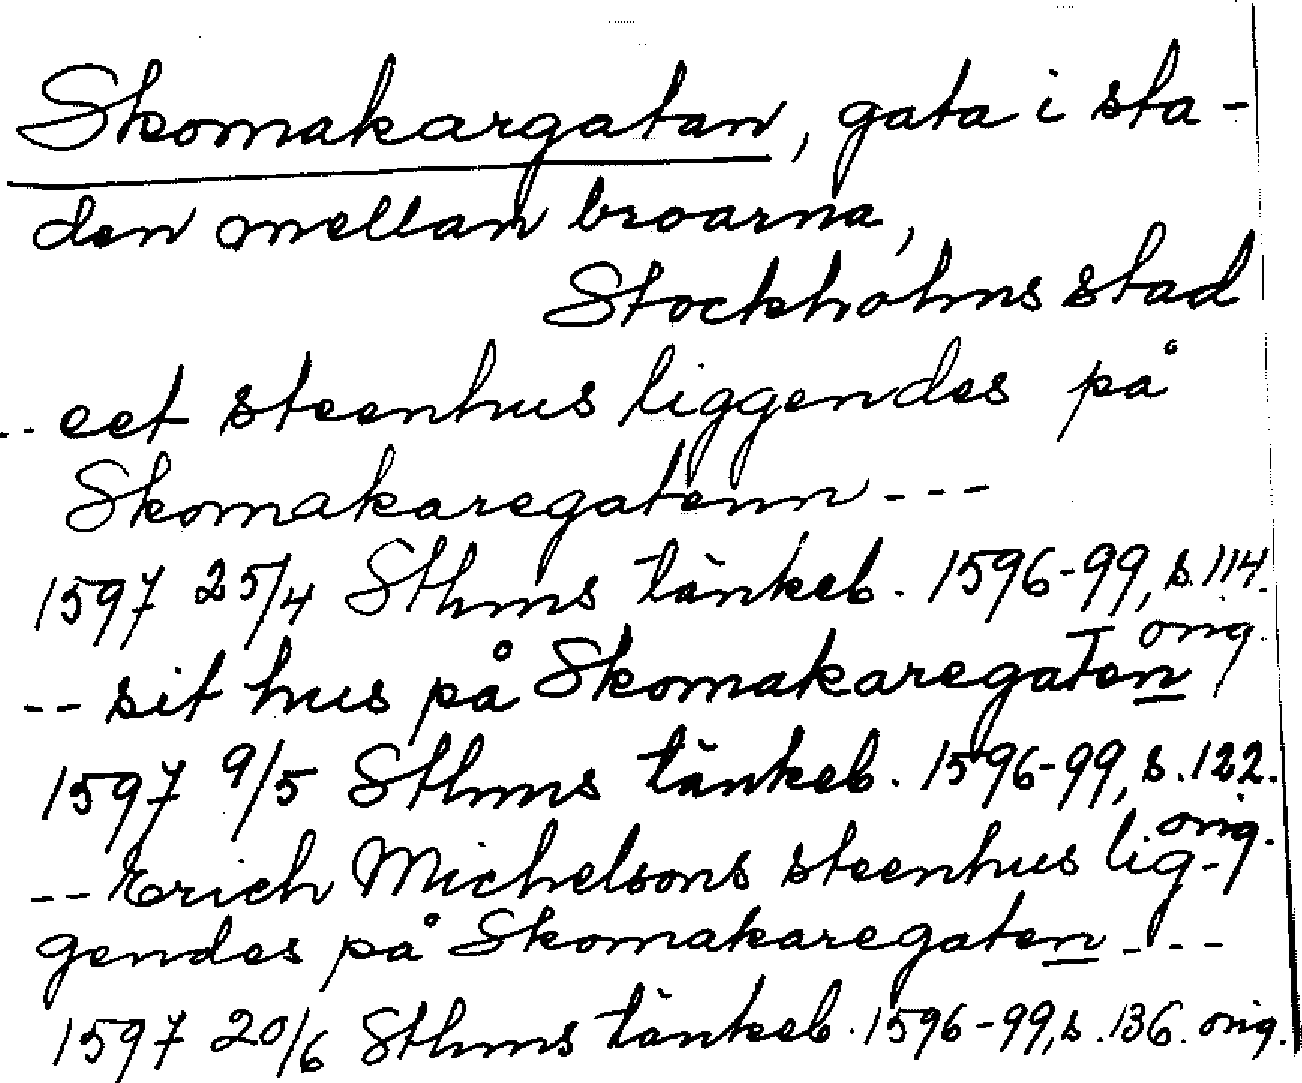 Skomakargatan, gata i sta-
den mellan broarna,
Stockholms stad
-- eet steenhus liggendes på
Skomakaregatenn ---
1597 25/4 Sthms tänkeb. 1596-99, s. 114.
orig.
-- sit hus på Skomakaregaten
1597 9/5 Sthms tänkeb. 1596-99, s. 122.
orig.
-- Erich Michelsons steenhus lig-
gendes på Skomakaregaten ---
1597 20/6 Sthms tänkeb. 1596-99, s. 136. orig.